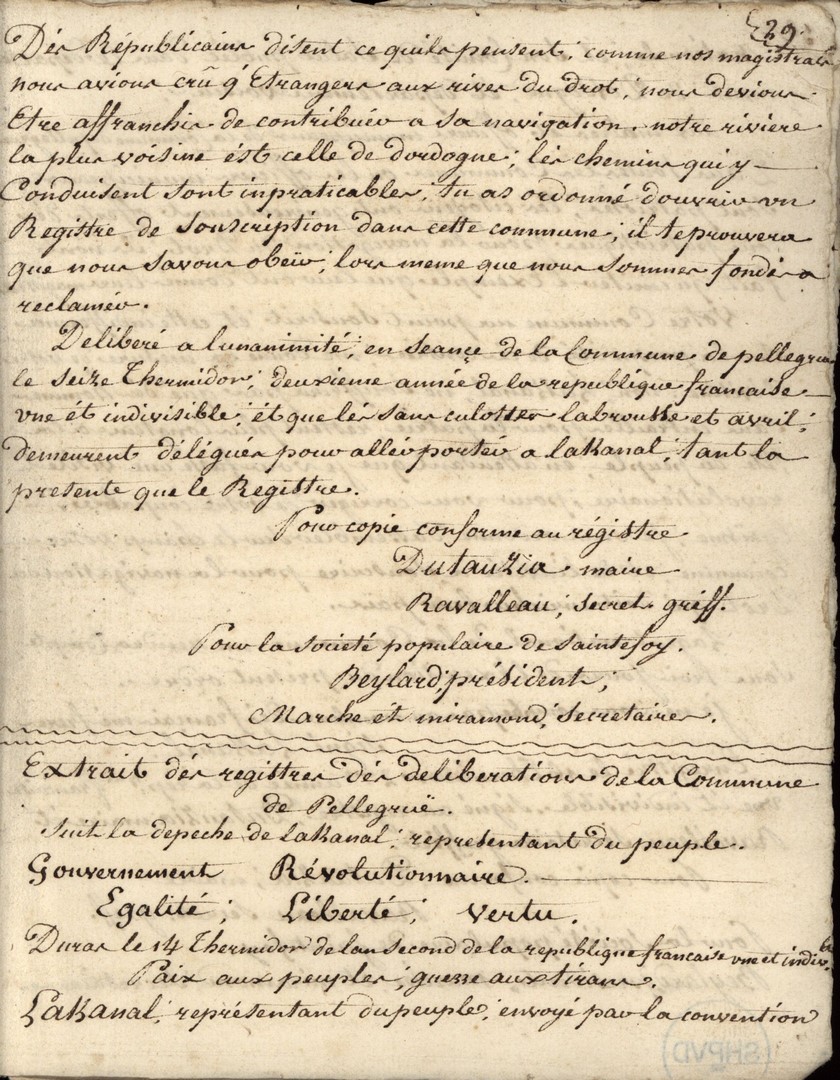 39.
Dés Républicains disent ce quils pensent; comme nos magistrats
nous avions crû q' Etrangers aux rives du drot; nous devions
Etre affranchis de contribuér a sa navigation. notre riviere
la plus voisine ést celle de dordogne; lés chemins qui y
Conduisent sont inpraticables; tu as ordonné d'ouvrir vn
Registre de Souscription dans cette commune; il te prouvera
que nous savons obeïr; lors meme que nous sommes fondés a
reclamér.
Deliberé a lunanimité; en seançe de la Commune de pellegrue
le seize Thermidor; deuxieme année de la republique françaîse
vne ét indivisible; ét que lés sans culottes labrousse et avril;
demeurent délégués pour allér portér a laKanal; tant la
presente que le Registre.
Pour copie conforme au régistre
Dutauzia maire
Ravalleau; secret. gréff.
Pour la societé populaire de saintefoy.
Beylard; président;
Marche et miramond; secretaires.
Extrait dés registres dés deliberations de la Commune
de Pellegruë.
suit la depeche de laKanal; representant du peuple.
Gouvernement Révolutionnaire.
Egalité; Liberté; vertu.
Duras le 14 Thermidor de lan second de la republique française vne et indiv.ble
Paix aux peuples; guerre aux tirans.
LaKanal; représentant du peuple; envoyé par la convention
(SHPVD)